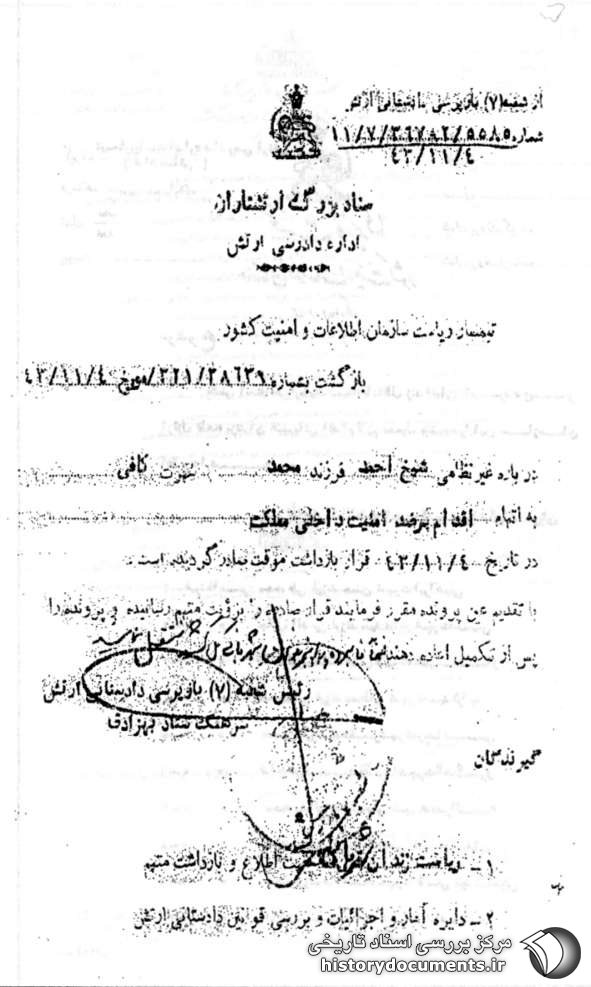 از شعبه (۷) بازپرسی دادستانی ارتش
شماره ۱۱/۷/۳۶۷۸۲/۵۵۸۵
۴۳/۱۱/۴
ستاد بزرگ ارتشتاران
اداره دادرسی ارتش
تیمسار ریاست سازمان اطلاعات و امنیت کشور
بازگشت بشماره ۳۲۱/۲۸۶۳۹ مورخ ۴۳/۱۱/۴
درباره غیر نظامی شیخ احمد فرزند محمد شهرت کافی
به اتهام اقدام برضد امنیت داخلی مملکت
در تاریخ ۴۳/۱۱/۴ قرار بازداشت موقت صادر گردیده است.
با تقدیم عین پرونده مقرر فرمایند قرار صادره را برؤیت متهم رسانیده و پرونده را
پس از تکمیل اعاده دهند
رئیس شعبه (۷) بازپرسی دادستانی ارتش
سرهنگ ستاد بهزادی
گیرندگان
۱ - ریاست زندان جهت اطلاع و بازداشت متهم
۲ - دایره آمار و اجرائیات و بررسی قوانین دادستانی ارتش
مرکز بررسی اسناد تاریخی
historydocuments.ir